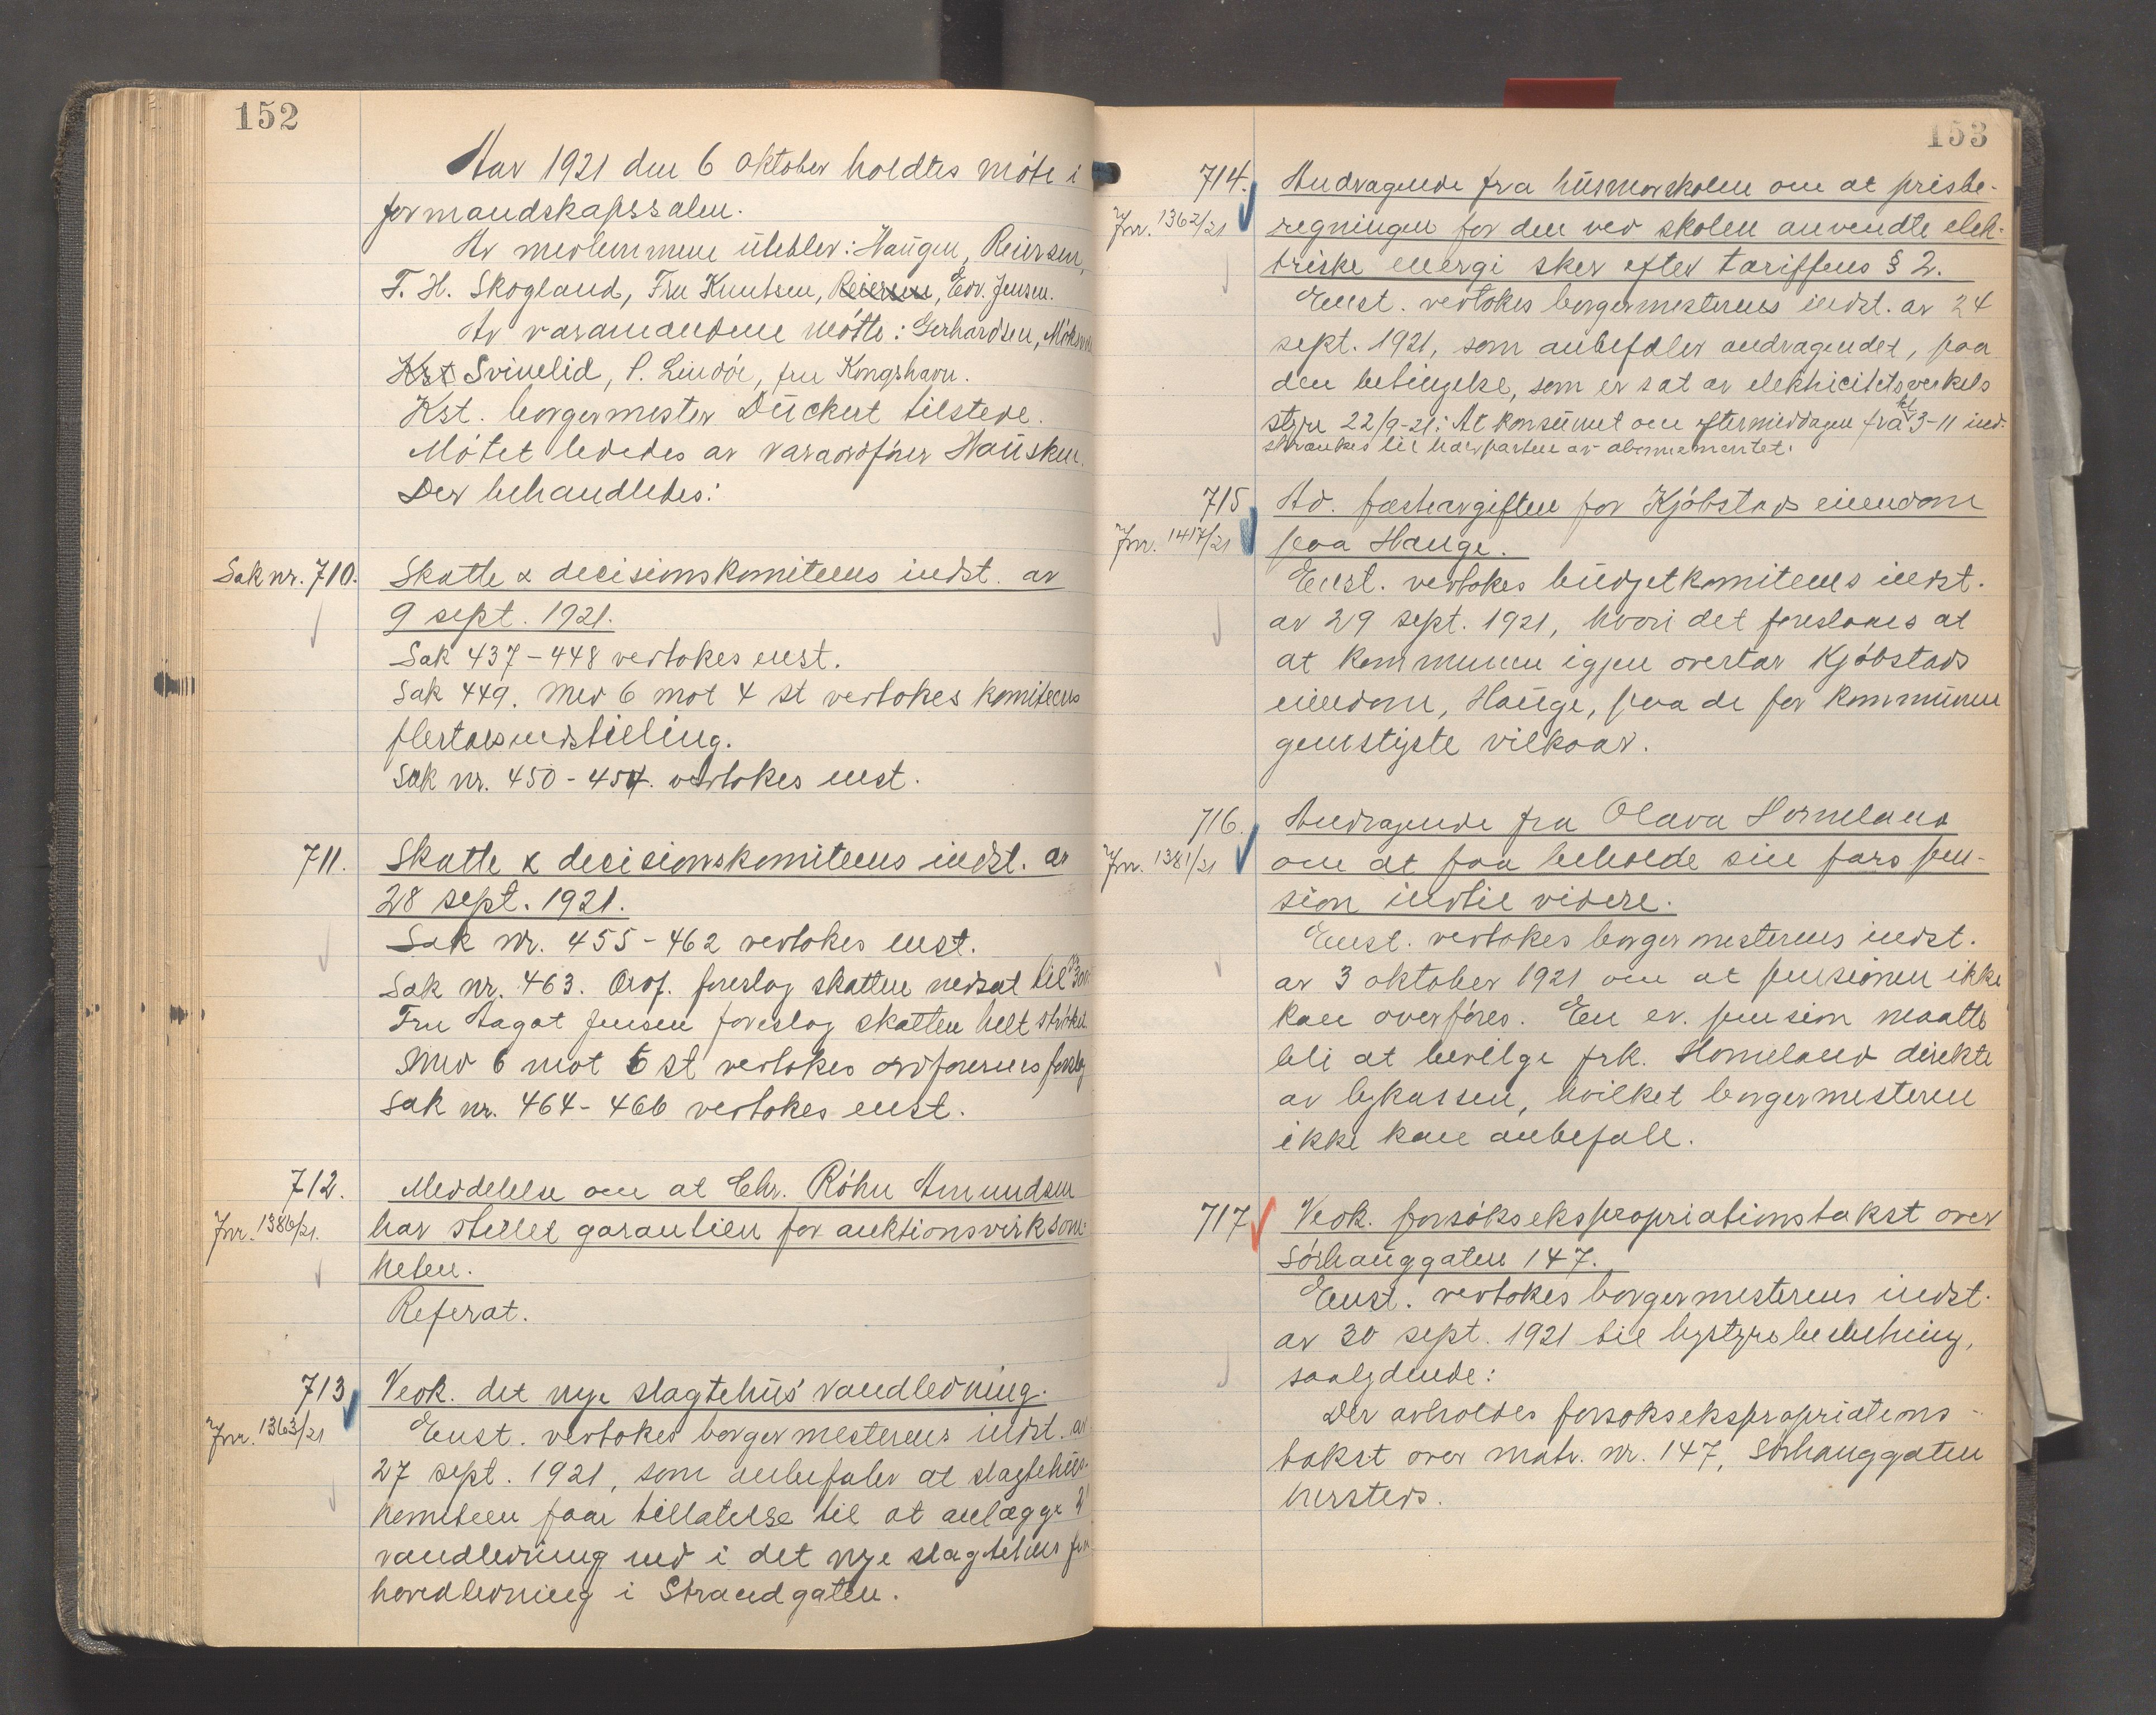 152
Aar 1921 den 6 oktober holdtes møte i
formandskapssalen.
Av medlemmene utebler: Haugen, Reiersen,
T. H. Skogland, Fru Knutsen, Reiersen, Edv. Jensen.
Av varamændene møtte: Gerhardsen,
Kst Svinelid, P. Lindøe, fru Kongshavn.
Kst. borgermester Dückert tilstede.
Møtet lededes av varaordfører Hausken.
Der behandledes:
Sak nr. 710. Skatte & decisionskomiteens indst. av
9 sept. 1921.
Sak 437-448 vedtokes enst.
Sak 449. Med 6 mot 4 st vedtokes komiteens
flertalsindstilling.
Sak nr. 450-454. vedtokes enst.
711. Skatte & decisionskomiteens indst. av
28 sept. 1921.
Sak nr. 455-462 vedtokes enst.
Sak nr. 463. Ordf. foreslog skatten nedsat til
Fru Aagot Jensen foreslog skatten helt strøket
Med 6 mot 5 st vedtokes ordførerens forslag
Sak nr. 464-466 vedtokes enst.
712. Meddelelse om at Chr. Røhn Amundsen
Jnr. 1386/21. har stillet garantien for auktionsvirksom-
heten.
Referat.
713 Vedk. det nye slagtehus' vandledning.
Jnr. 1363/21 Enst. vedtokes borgermesterens indst. av
27 sept. 1921, som anbefaler at slagtehus-
komiteen faar tillatelse til at anlægge 2"
vandledning ind i det nye slagtehus fra
hovedledning i Strandgaten.
153
714. Andragende fra husmorskolen om at prisbe-
Jnr. 1362/21 regningen for den ved skolen anvendte elek-
triske energi sker efter tariffens § 2.
Enst. vedtokes borgermesterens indst. av 24
sept. 1921, som anbefaler andragendet, paa
den betingelse, som er sat av elektricitetsverkets
styre 22/9-21: At konsumet om eftermiddagen fra kl 3-11 ind-
skrænkes til halvparten av abonnementet.
715 Ad. fæsteavgiften for Kjøbstads eiendom
Jnr. 1417/21 paa Hauge.
Enst. vedtokes budgetkomiteens indst.
av 29 sept. 1921, hvori det foreslaaes at
at kommunen igjen overtar Kjøbstads
eiendom, Hauge, paa de for kommunen
gunstigste vilkaar.
716. Andragende fra Olava Homeland
Jnr. 1381/21 om at faa beholde sin fars pen-
sion indtil videre.
Enst. vedtokes borgermesterens indst.
av 3 oktober 1921 om at pensionen ikke
kan overføres. En ev. pension maatte
bli at bevilge frk. Homeland direkte
av bykassen, hvilket borgermesteren
ikke kan anbefale.
717 Vedk. forsøksekspropriationstakst over
Sørhauggaten 147.
Enst. vedtokes borgermesterens indst.
av 30 sept. 1921 til bystyrebeslutning,
saalydende:
Der avholdes forsøksekspropriations-
takst over matr. nr. 147, Sørhauggaten
hersteds.